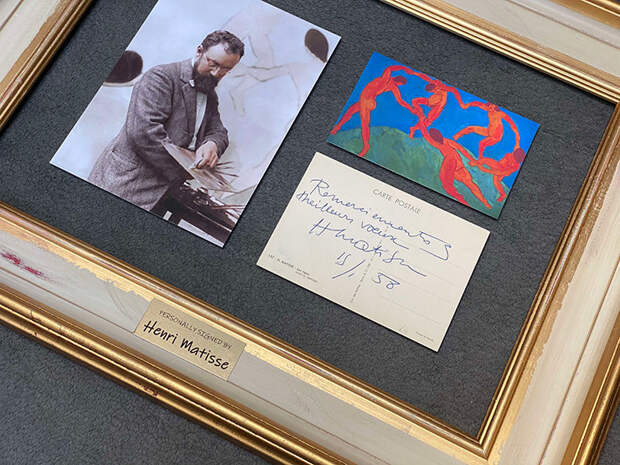 CARTE POSTALE
Remerciements &
Meilleurs vœux
HMatisse
15/1 50
PERSONALLY SIGNED BY
Henri Matisse